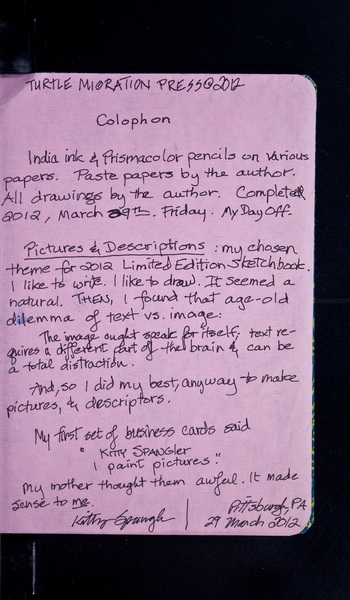 TURTLE MIGRATION PRESS@2012
Colophon
India ink & Prismacolor pencils on various
papers. Paste papers by the author.
All drawings by the author. Completed
2012, March 29th. Friday. My Day Off.
Pictures & Descriptions: my chosen
theme for 2012 Limited Edition Sketchbook.
I like to write. I like to draw. It seemed a
natural. THEN, I found that age-old
dilemma of text vs. image:
The image ought speak for itself, text re-
quires a different part of the brain & can be
a total distraction.
And, so I did my best, anyway to make
pictures, & descriptors.
My first set of business cards said
"KITTY SPANGLER
I paint pictures."
My mother thought them awful. It made
sense to me.
Kitty Spangler
Pittsburgh, PA
29 March 2012